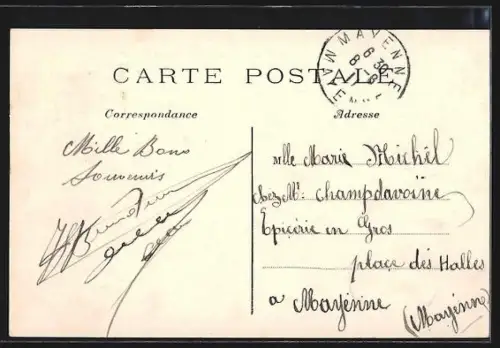 CARTE POSTALE
Correspondance
Mille Bons
Souvenirs
Adresse
Mlle Marie Michel
Chez Mr: Champdavoine
Epicerie en Gros
place des Halles
a Mayenne
(Mayenne)
MAYENNE
6 30
8 -8
11
MAYENNE